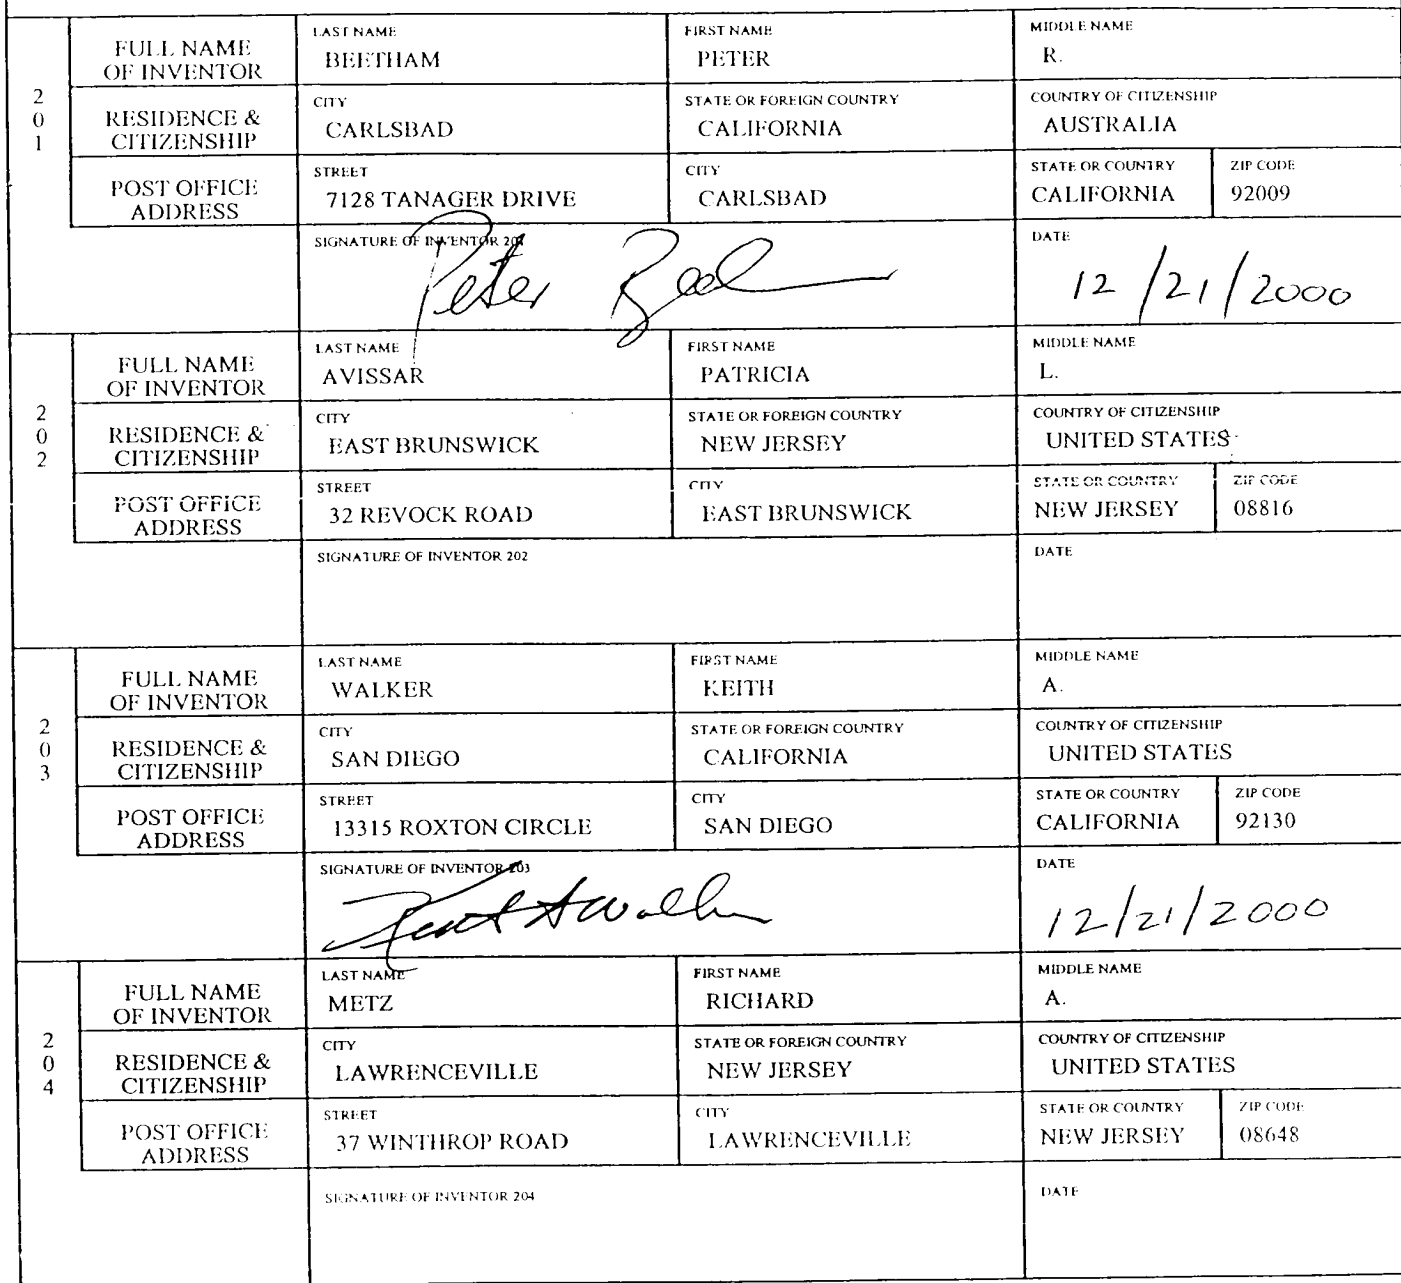 201
FULL NAME OF INVENTOR
LAST NAME
BEETHAM
FIRST NAME
PETER
MIDDLE NAME
R.
RESIDENCE & CITIZENSHIP
CITY
CARLSBAD
STATE OR FOREIGN COUNTRY
CALIFORNIA
COUNTRY OF CITIZENSHIP
AUSTRALIA
POST OFFICE ADDRESS
STREET
7128 TANAGER DRIVE
CITY
CARLSBAD
STATE OR COUNTRY
CALIFORNIA
ZIP CODE
92009
SIGNATURE OF INVENTOR 201
Peter
DATE
12/21/2000
202
FULL NAME OF INVENTOR
LAST NAME
AVISSAR
FIRST NAME
PATRICIA
MIDDLE NAME
L.
RESIDENCE & CITIZENSHIP
CITY
EAST BRUNSWICK
STATE OR FOREIGN COUNTRY
NEW JERSEY
COUNTRY OF CITIZENSHIP
UNITED STATES
POST OFFICE ADDRESS
STREET
32 REVOCK ROAD
CITY
EAST BRUNSWICK
STATE OR COUNTRY
NEW JERSEY
ZIP CODE
08816
SIGNATURE OF INVENTOR 202
DATE
203
FULL NAME OF INVENTOR
LAST NAME
WALKER
FIRST NAME
KEITH
MIDDLE NAME
A.
RESIDENCE & CITIZENSHIP
CITY
SAN DIEGO
STATE OR FOREIGN COUNTRY
CALIFORNIA
COUNTRY OF CITIZENSHIP
UNITED STATES
POST OFFICE ADDRESS
STREET
13315 ROXTON CIRCLE
CITY
SAN DIEGO
STATE OR COUNTRY
CALIFORNIA
ZIP CODE
92130
SIGNATURE OF INVENTOR 203
DATE
12/21/2000
204
FULL NAME OF INVENTOR
LAST NAME
METZ
FIRST NAME
RICHARD
MIDDLE NAME
A.
RESIDENCE & CITIZENSHIP
CITY
LAWRENCEVILLE
STATE OR FOREIGN COUNTRY
NEW JERSEY
COUNTRY OF CITIZENSHIP
UNITED STATES
POST OFFICE ADDRESS
STREET
37 WINTHROP ROAD
CITY
LAWRENCEVILLE
STATE OR COUNTRY
NEW JERSEY
ZIP CODE
08648
SIGNATURE OF INVENTOR 204
DATE